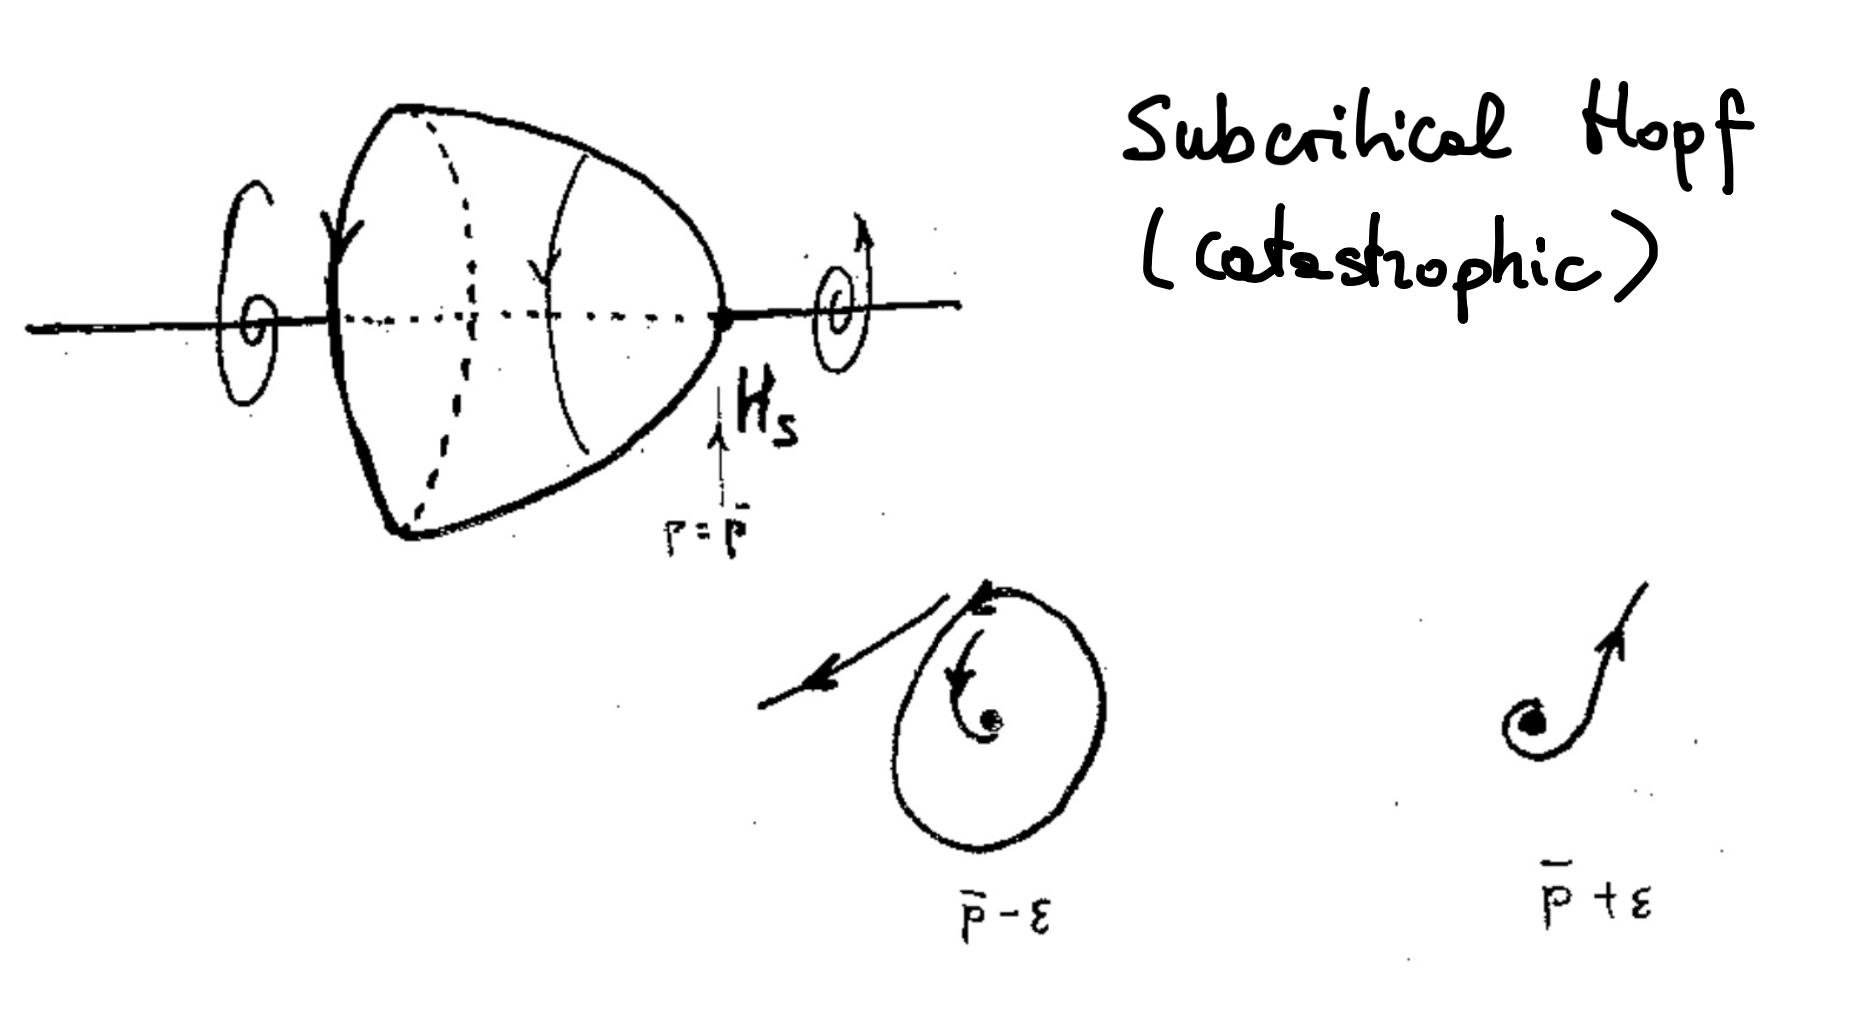 Subcritical Hopf
(catastrophic)
Hs
p = p̄
p̄ - ε
p̄ + ε